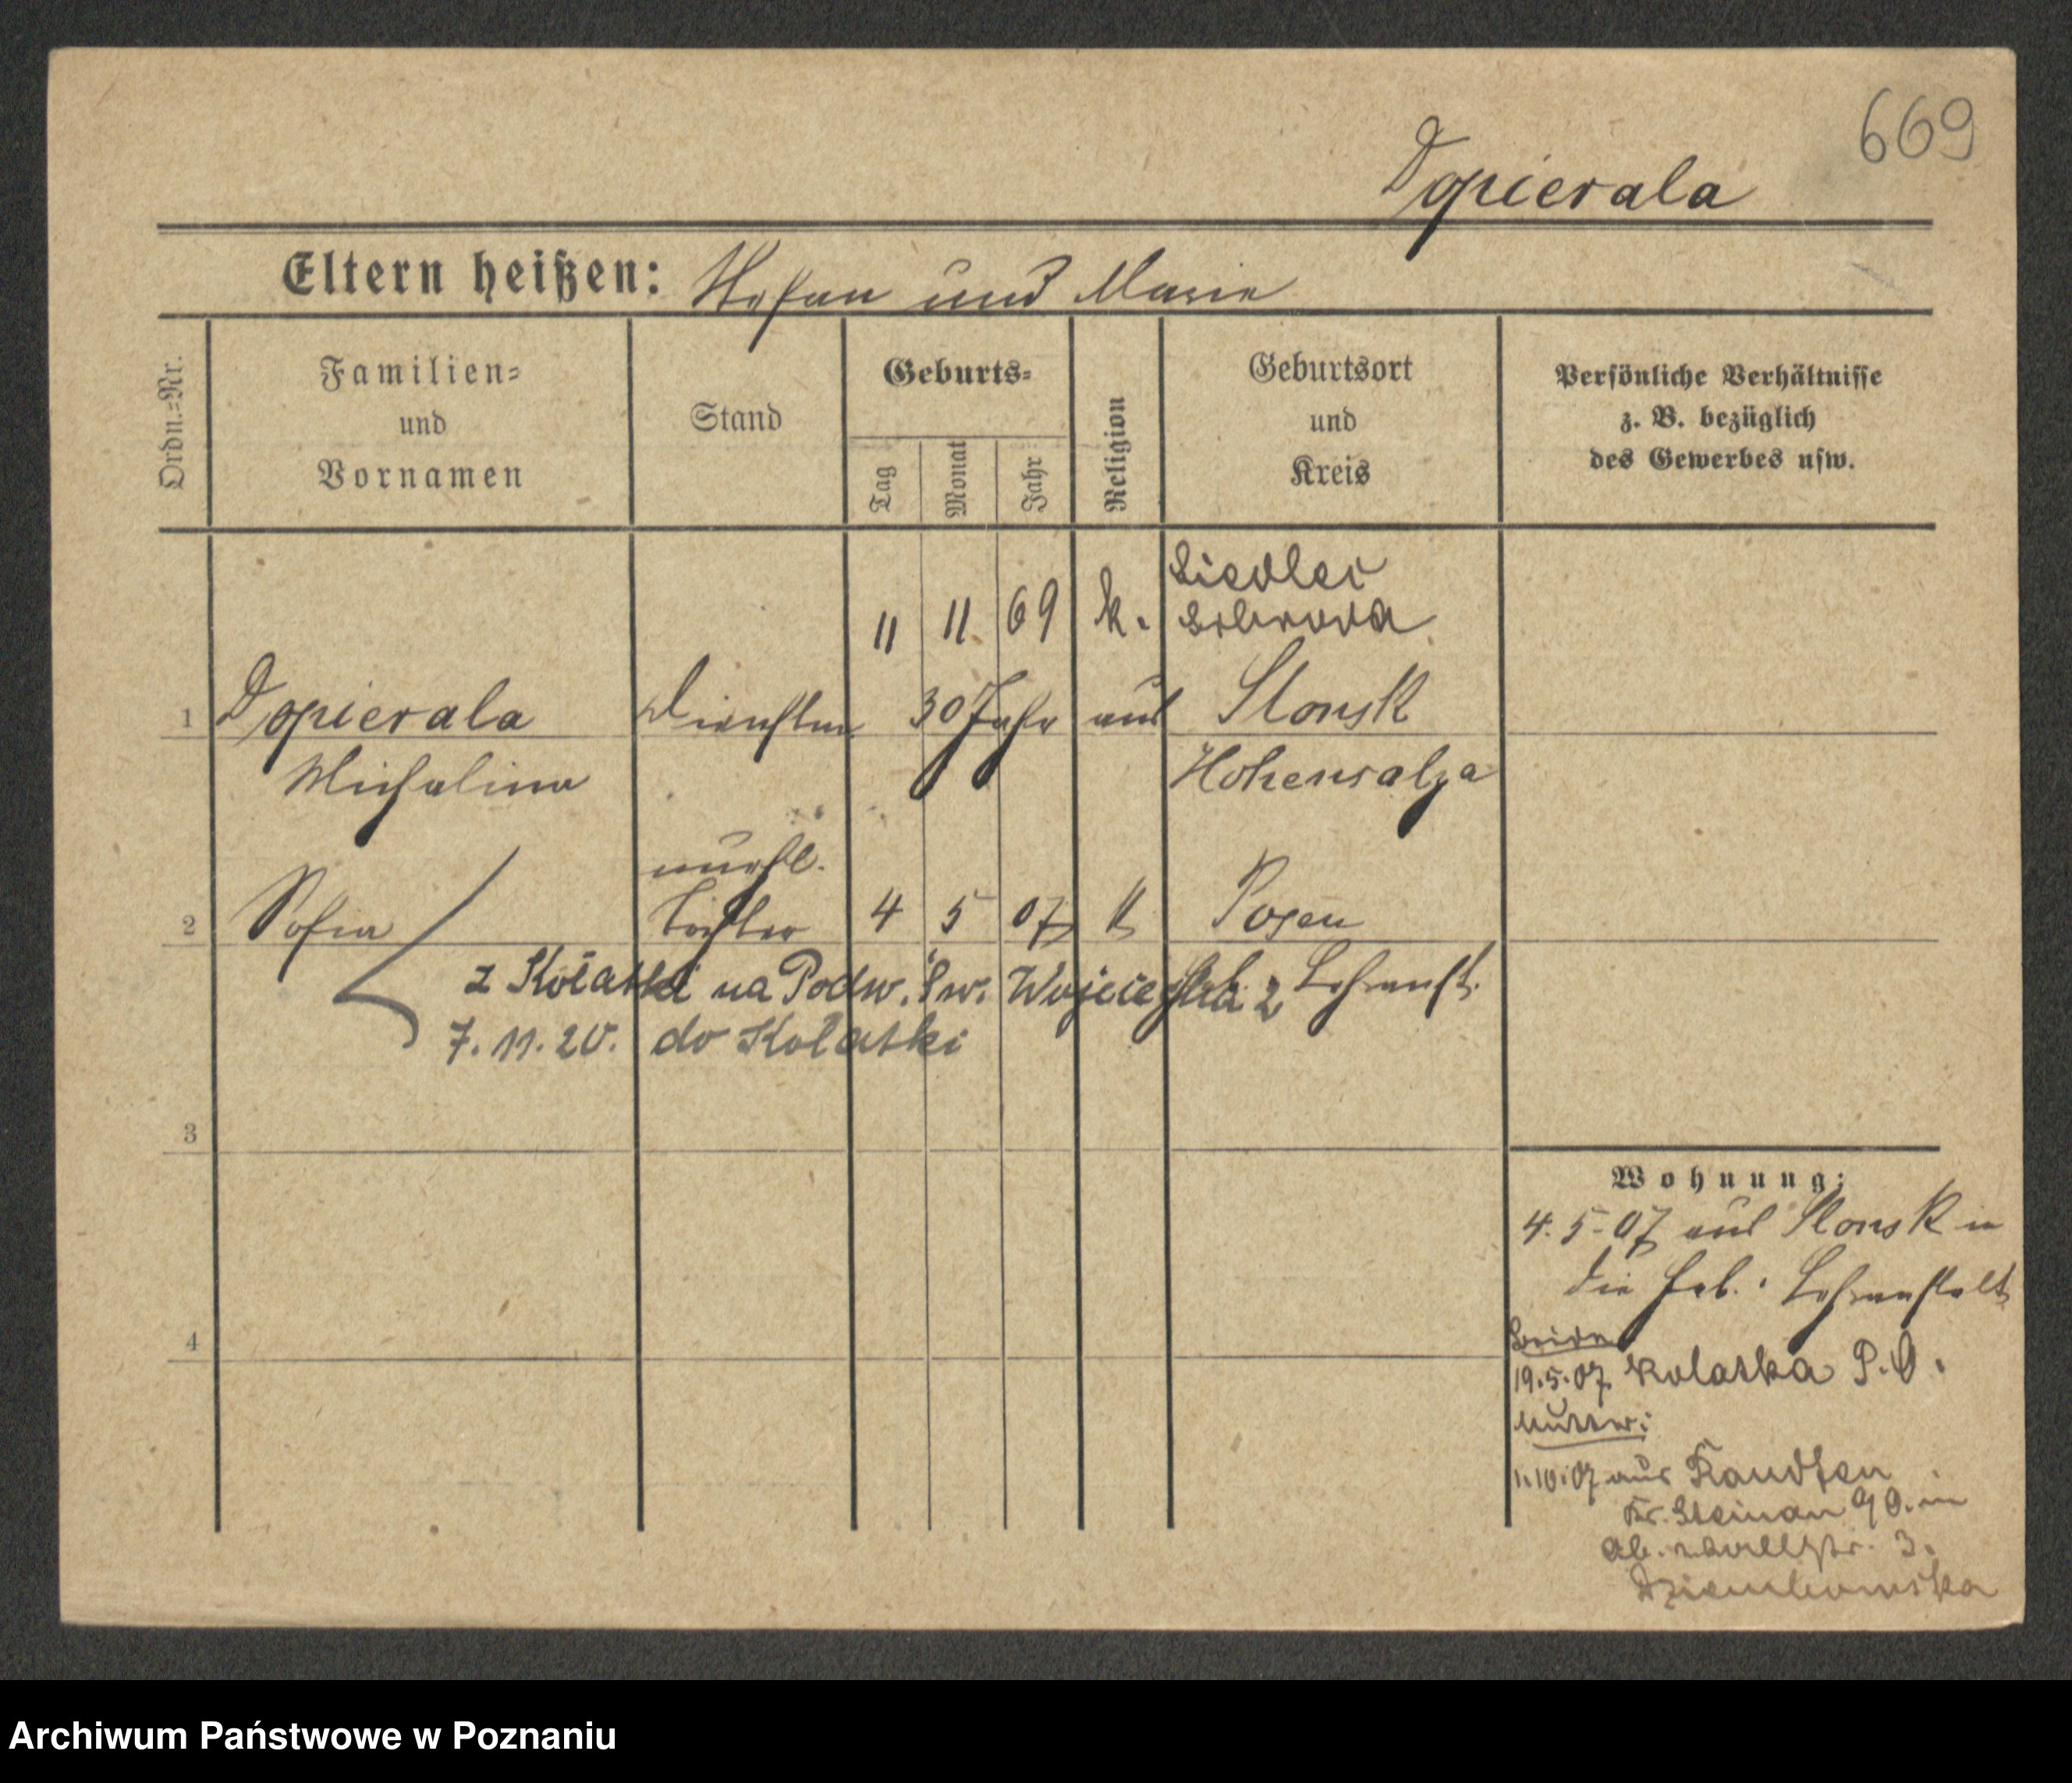 669
Dopierala
Eltern heißen: Stefan und Marie
Ordn.=Nr.
Familien=
und
Vornamen
Stand
Geburts=
Tag
Monat
Jahr
Religion
Geburtsort
und
Kreis
Persönliche Verhältnisse
z. B. bezüglich
des Gewerbes usw.
11 11 69 k. Siedler
1 Dopierala 30 Jahr aus Slonsk
Michalina Hohensalza
unehl.
2 Sofia Tochter 4 5 07 k Posen
z Kołatki na Podw. Św. Wojciecha 2
7.11.20. do Kołatki
3
4
Wohnung:
4.5.07 aus Slonsk in
die Heb. Lehranstalt
Beide
19.5.07. Kolatka P.O.
Mutter:
1.10.07 aus Raudten
Kr. Steinau 90. in
3.
Dziembowska
Archiwum Państwowe w Poznaniu